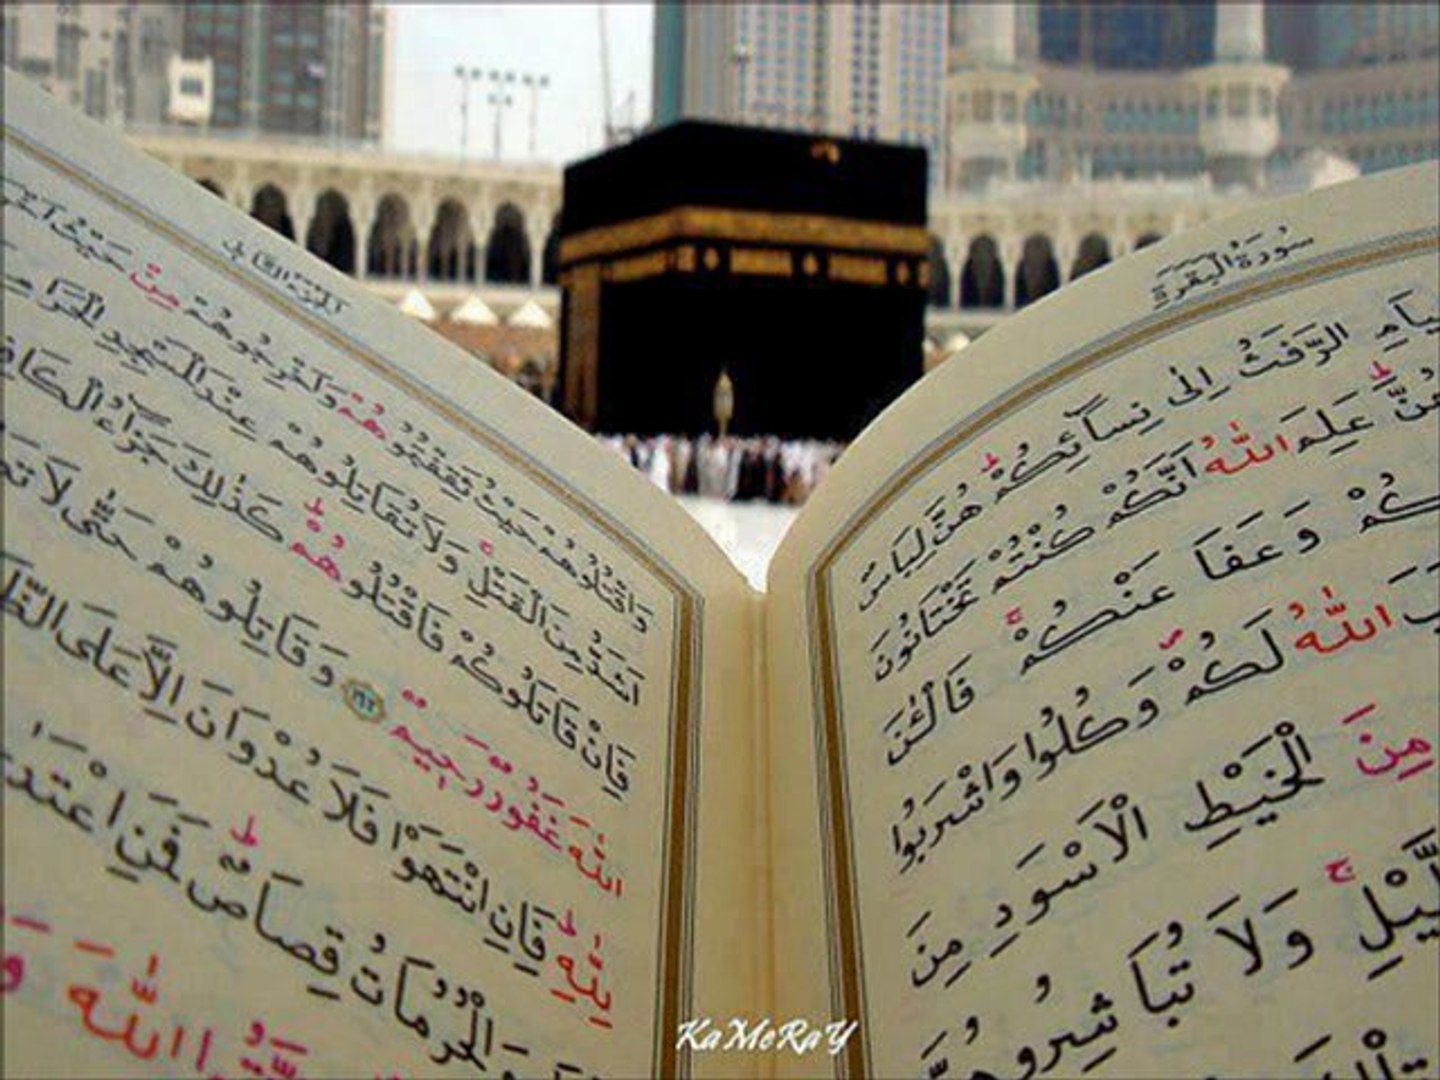 سُورَةُ الْبَقَرَةِ
الرَّفَثُ اِلٰى نِسَٓائِكُمْۜ هُنَّ لِبَاسٌ
عَلِمَ اللّٰهُ اَنَّكُمْ كُنْتُمْ تَخْتَانُونَ
وَعَفَا عَنْكُمْۚ فَالْـٰٔنَ
اللّٰهُ لَكُمْۖ وَكُلُوا وَاشْرَبُوا
الْخَيْطِ الْاَسْوَدِ مِنَ
وَلَا تُبَاشِرُوهُنَّ
وَاقْتُلُوهُمْ حَيْثُ ثَقِفْتُمُوهُمْ وَاَخْرِجُوهُمْ مِنْ حَيْثُ
اَشَدُّ مِنَ الْقَتْلِۚ وَلَا تُقَاتِلُوهُمْ عِنْدَ الْمَسْجِدِ الْحَرَامِ
فَاِنْ قَاتَلُوكُمْ فَاقْتُلُوهُمْۜ كَذٰلِكَ جَزَٓاءُ
اللّٰهَ غَفُورٌ رَحِيمٌ ﴿١٩٢﴾ وَقَاتِلُوهُمْ حَتّٰى لَا
لِلّٰهِۜ فَاِنِ انْتَهَوْا فَلَا عُدْوَانَ اِلَّا عَلَى
الْحُرُمَاتُ قِصَاصٌۜ فَمَنِ اعْتَدٰى
اللّٰهَ
KaMeRaY